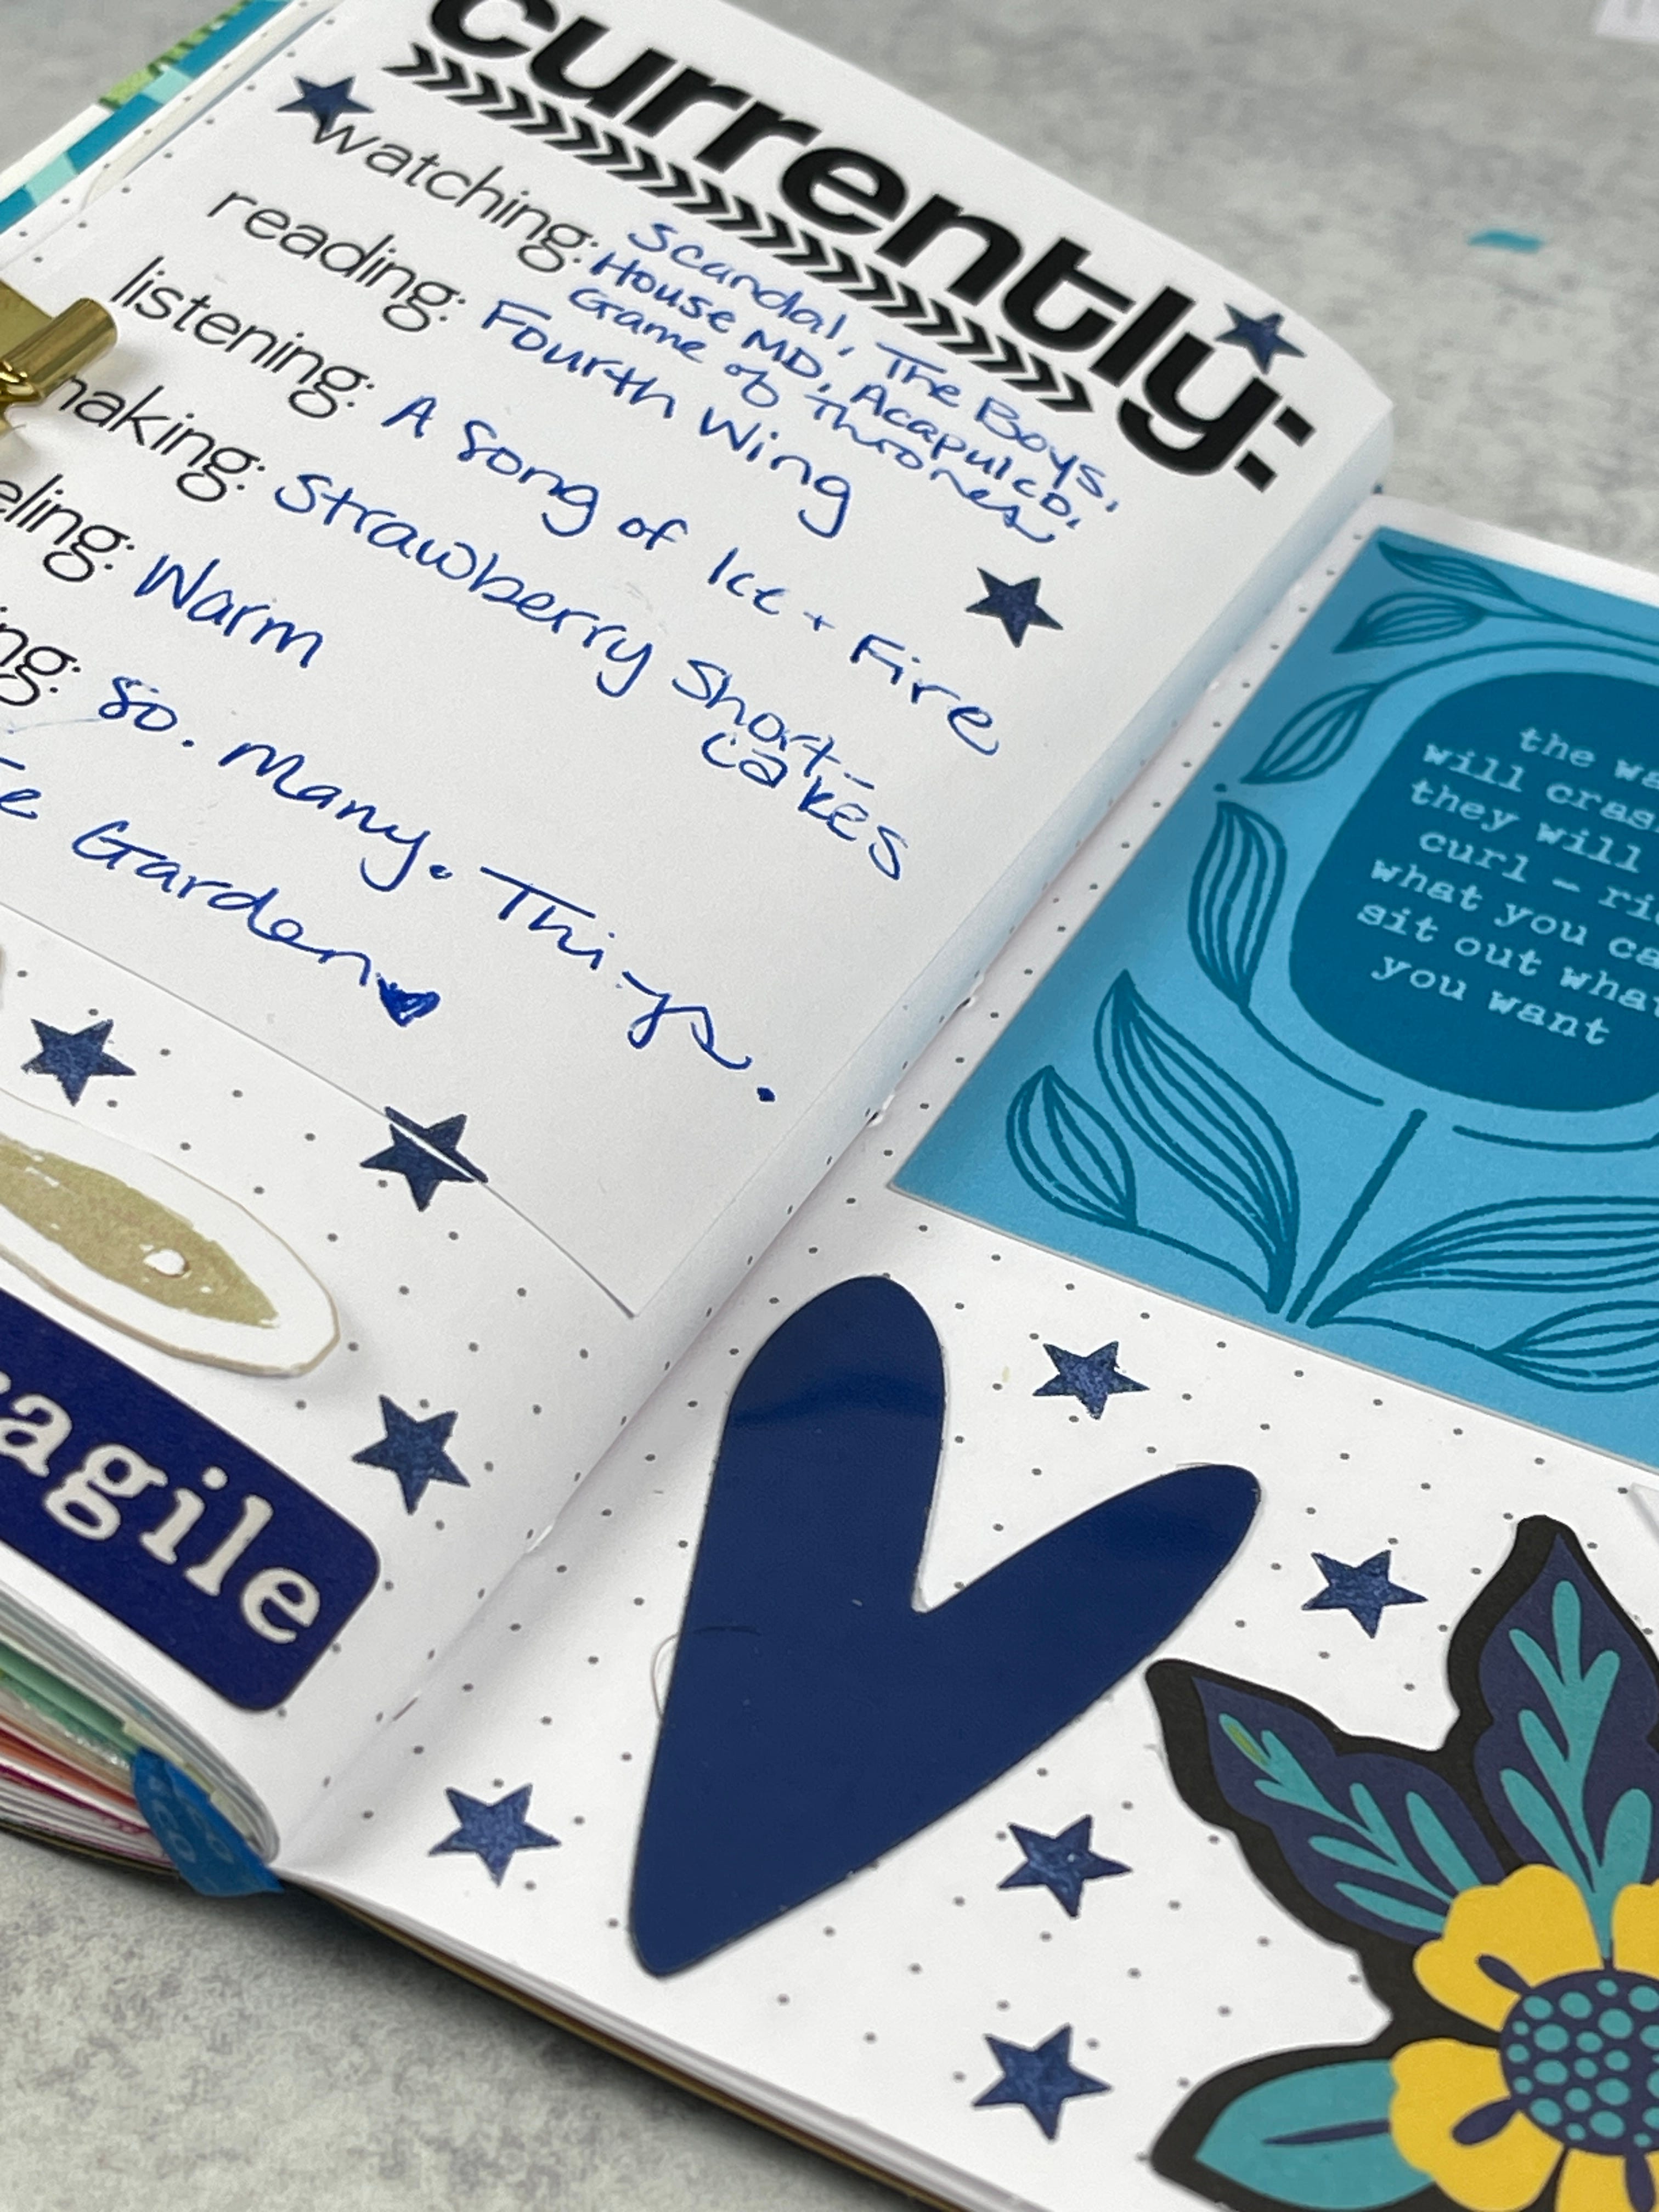 currently:
watching: Scandal, The Boys,
House MD, Acapulco,
Game of Thrones
reading: Fourth Wing
listening: A Song of Ice + Fire
making: Strawberry Short-
cakes
eling: Warm
ng: So. Many. Things.
Garden
agile
the wa
will cras
they will
curl - ri
what you ca
sit out what
you want